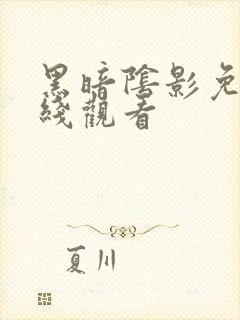 黑暗陰影免
綫觀看
夏川